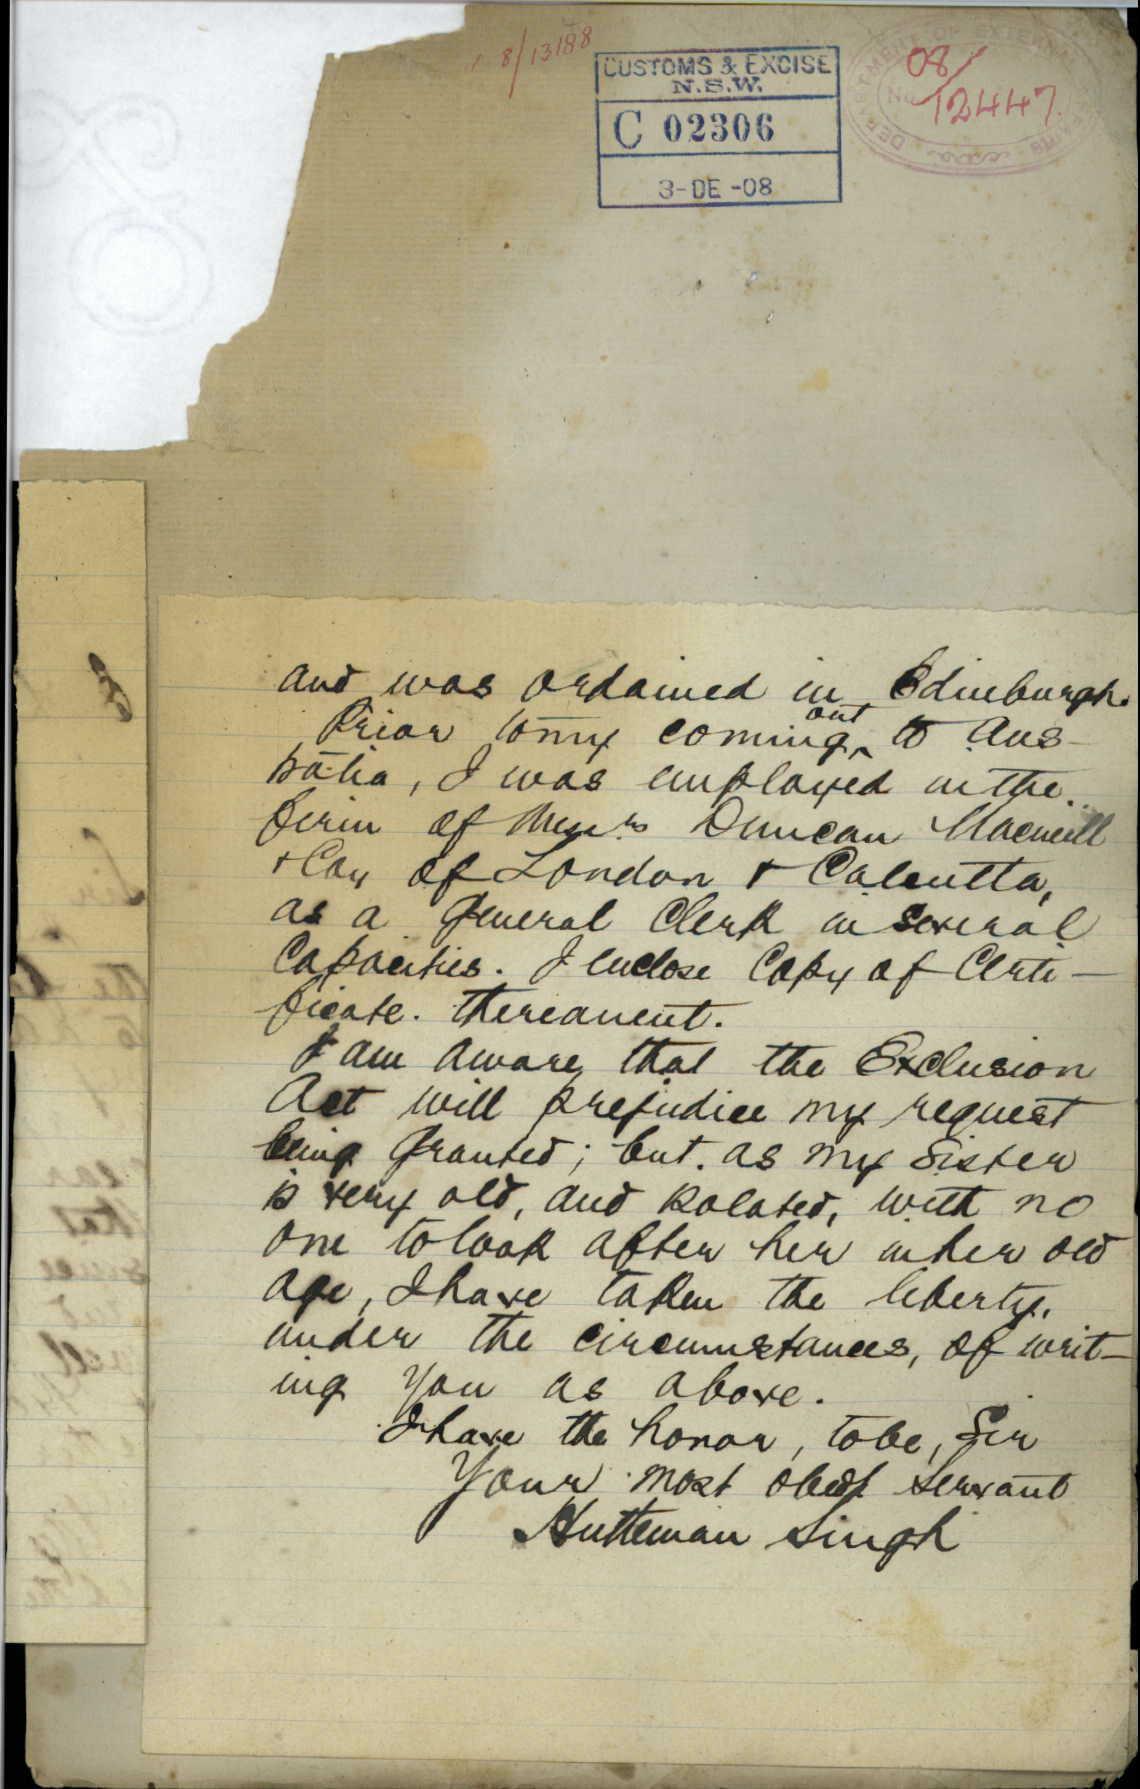 8/13188
CUSTOMS & EXCISE
N.S.W.
C 02306
3-DE-08
08/
No 12447
and was ordained in Edinburgh.
Prior to my coming out to Aus-
tralia, I was employed in the
firm of Messrs Duncan Macneill
& Coy of London & Calcutta,
as a General Clerk in several
Capacities. I enclose Copy of Certi-
ficate. thereanent.
I am aware that the Exclusion
Act will prejudice my request
being granted; but. as my Sister
is very old, and isolated, with no
one to look after her in her old
age, I have taken the liberty,
under the circumstances, of writ-
ing you as above.
I have the honor, to be, Sir
Your most obedt Servant
Hutteman Singh